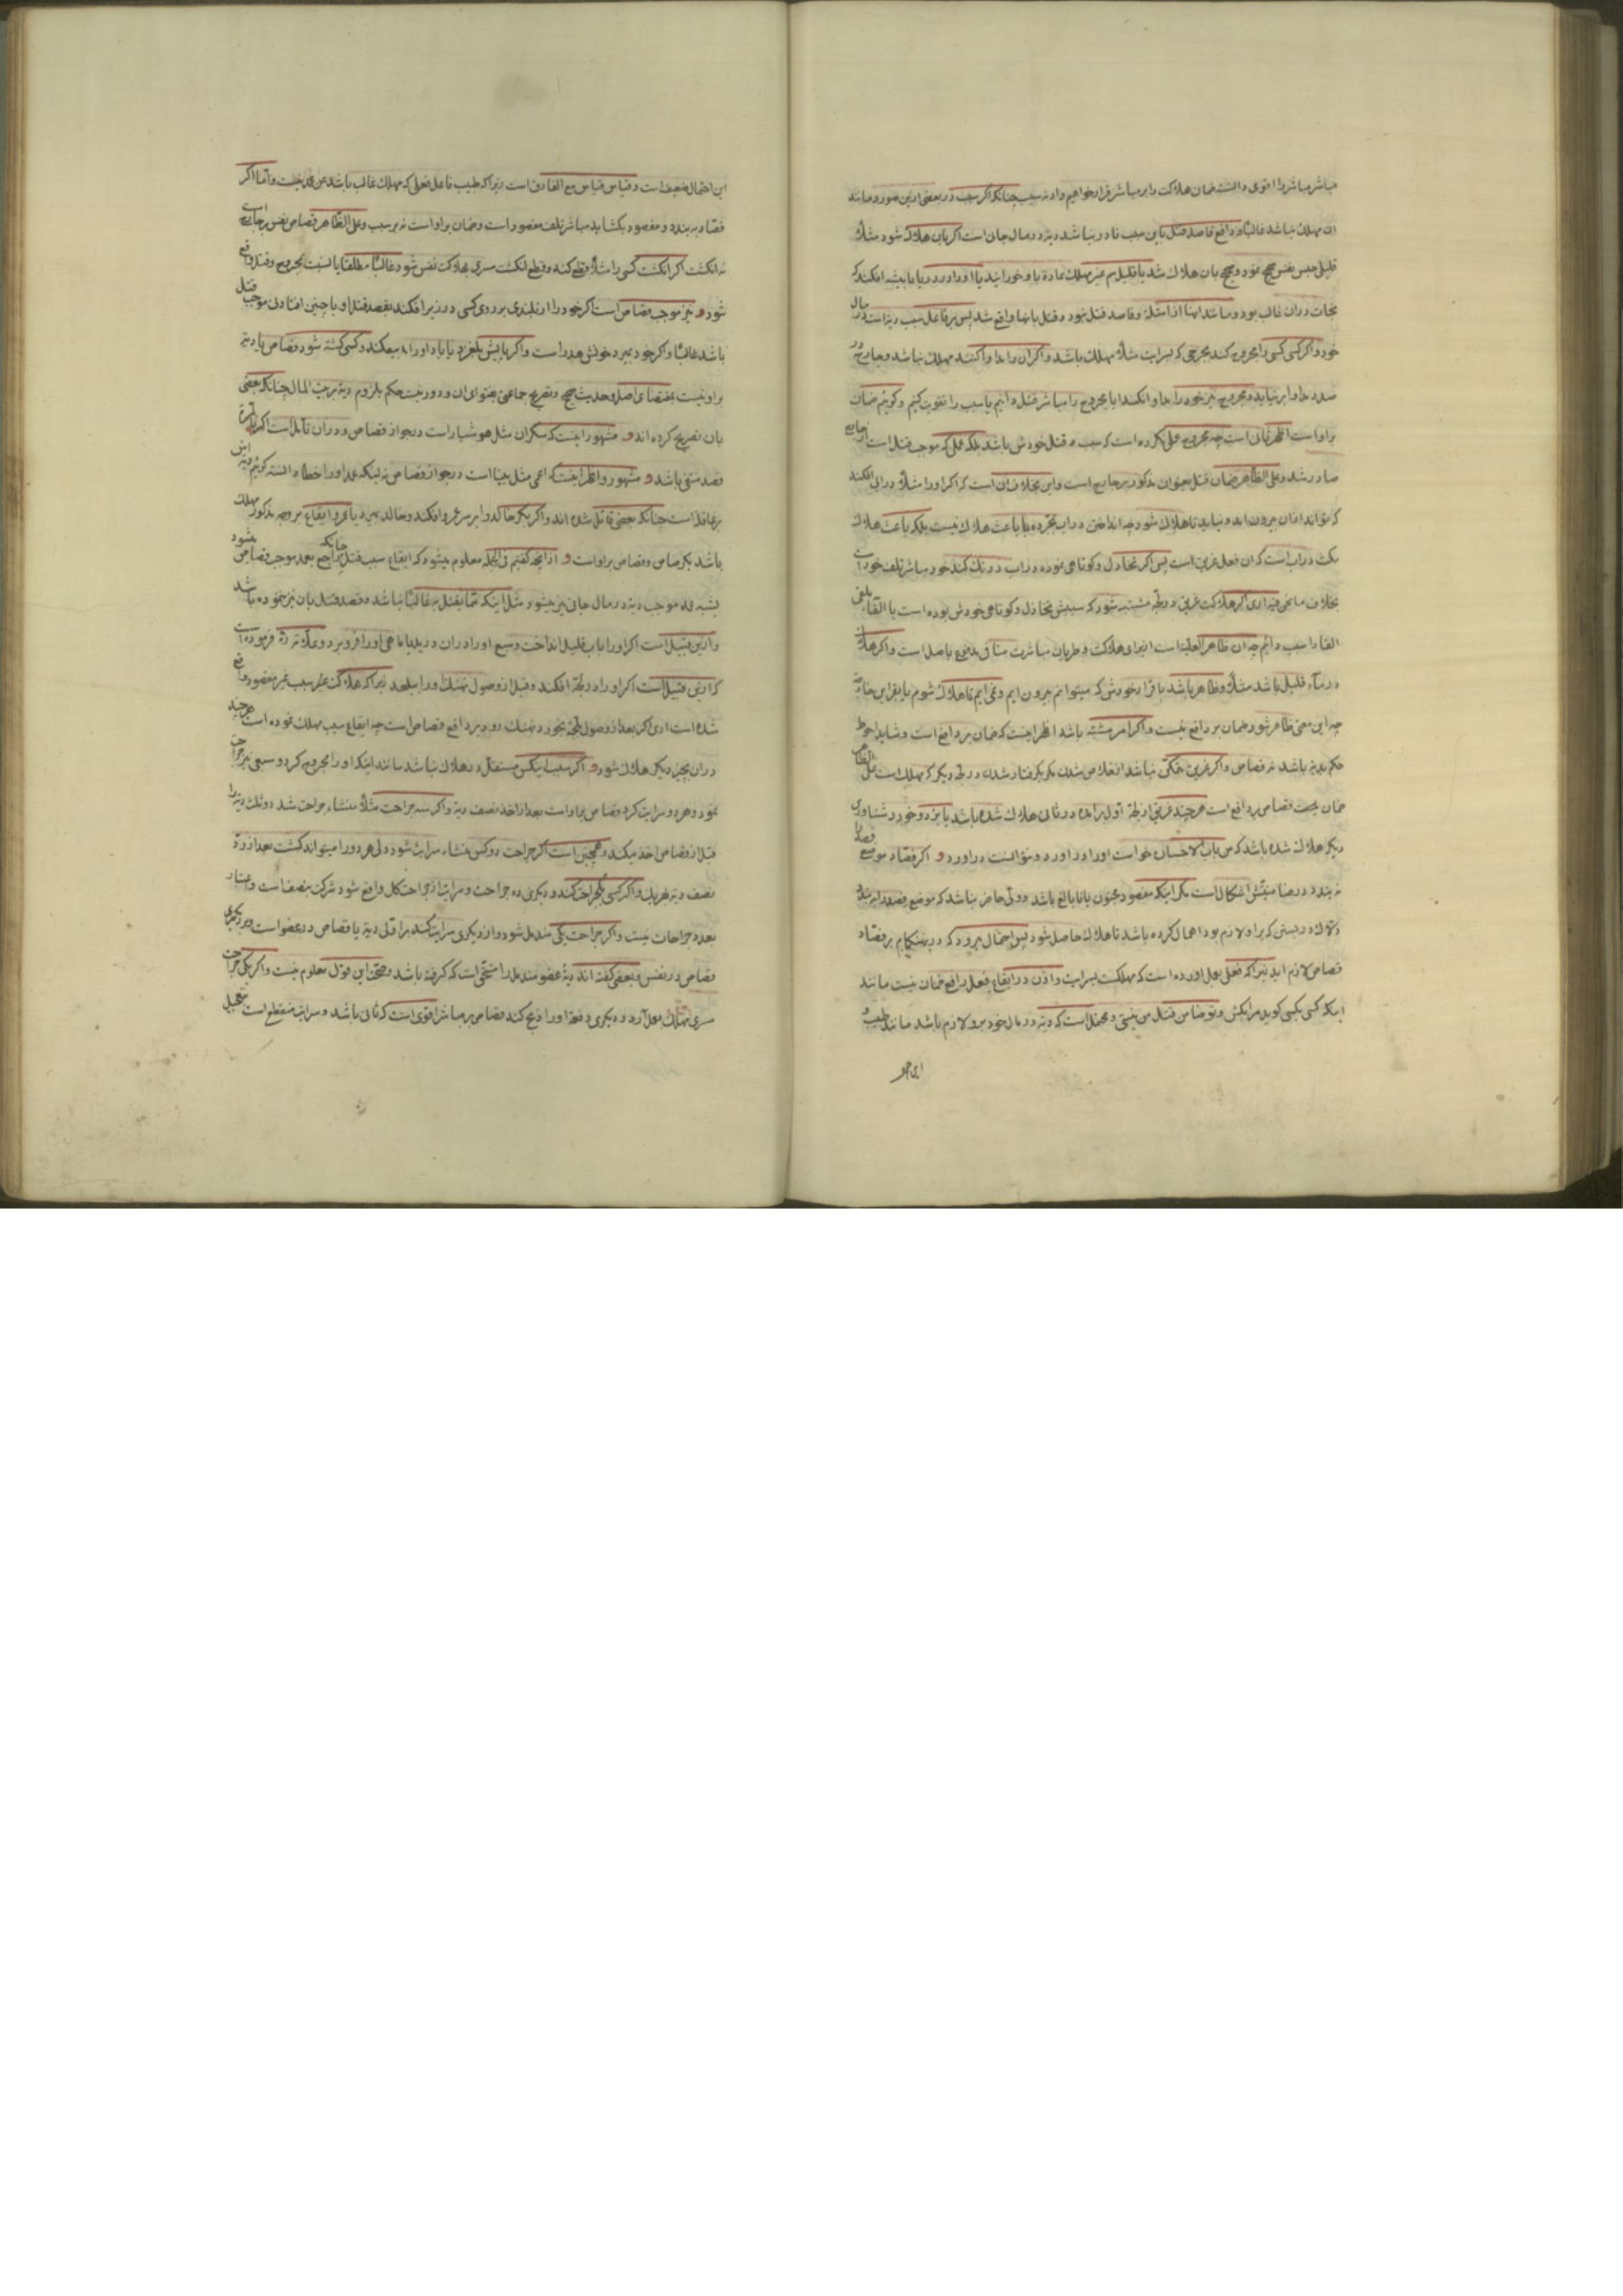 مباشر مباشر را اقوی دانسته ضمان هلاکت را بر مباشر قرار خواهیم داد نه سبب چنانکه اگر سبب در بعضی ازین صور و مانند
ان مهلک نباشد غالبًا و دافع قاصد قتل باین سبب نادر نباشد دیه در مال جان است اکر بان هلاک شود مثلاً
نجات دران غالب بود و مانند اینها از امثله و قاصد قتل نبود و قتل بانها واقع شد پس بر فاعل سبب دیه است در مال
خود و اکر کسی کسی را مجروح کند بجرحی که بسرایت مثلاً مهلک باشد و اکر ان را مداوا کنند مهلک نباشد و جارح در
صدد مداوا بر نیاید و مجروح نیز خود را مداوا نکند ایا مجروح را مباشر قتل دانیم یا سبب را تقویت کنیم و کوئیم ضمان
بر او است اظهر ثانی است چه مجروح عملی نکرده است که سبب قتل خودش باشد بلکه عملی که موجب قتل است از جارح
صادر شد و علی الظاهر ضمان قتل بعنوان مذکور بر جارح است و این بخلاف ان است که اکر او را مثلاً در ابی افکند
که تواند ازان بیرون اید و نیاید تا هلاک شود چه انداختن در اب بمجرده یا باعث هلاک نیست بلکه باعث هلاک
مکث در اب است که ان فعل غریق است پس اکر تخاذل و کوتاهی نموده در اب درنک کند خود مباشر تلف خود است
بخلاف ما نحن فیه اری اکر هلاکت غریق در لجه مشتبه شود که سببش تخاذل و کوتاهی خودش بوده است یا القاء ملقی
القا را سبب دانیم چه ان ظاهر العلیة است از برای هلاکت و طریان مباشرت منافی مدفوع باصل است و اکر هلاک
در ماء قلیل باشد مثلاً و ظاهر باشد باقرار خودش که میتوانم بیرون ایم و نمی ایم تا هلاک شوم یا بقراین خارجیه
چه این معنی ظاهر شود ضمان بر دافع نیست و اکر امر مشتبه باشد اظهر اینست که ضمان بر دافع است و شاید احوط
حکم بدیه باشد نه قصاص و اکر غریق متمکن نباشد از خلاص شدن مکر بکرفتار شدن در لجه دیکر که مهلک است مثل
ضمان بحیث قصاص بر دافع است هر چند غریق از لجه اول بر امده در ثانی هلاک شده باشد یا مزد و خورد شناوری
دیکر هلاک شده باشد که من باب الاحسان خواست او را در اورد و نتوانست دراورد و اکر فصاد موضع فصد را
نه بندد در ضامنیتش اشکال است مکر اینکه مفصود مجنون یا نابالغ باشد و ولی حاضر نباشد که موضع فصد را به بندد
و لکن در بستن که بر او لازم بود اهمال کرده باشد تا هلاک حاصل شود پس احتمال میرود که در این هنکام بر فصاد
قصاص لازم اید زیرا که فعلی بعمل اورده است که مهلکست بسرایت و اذن در ایقاع فعل رافع ضمان نیست مانند
اینکه کسی بکسی کوید مرا بکش و تو ضامن قتل من نیستی و محتمل است که دیه در مال خود برو لازم باشد مانند طبیب و
این احتمال ضعیف است و قیاس قیاس مع الفارق است زیرا که طبیب فاعل فعلی که مهلک غالب باشد نیست و اما اکر
فصاد به بندد و مفصود بکشاید مباشر تلف مفصود است و ضمان بر او است نه بر سبب و علی الظاهر قصاص نفس بر جانی است
نه انکشت اکر انکشت کسی را مثلاً قطع کند و قطع انکشت مسری بهلاکت نفس شود غالبًا مطلقا یا نسبت بمجروح و قتل واقع
شود و نیز موجب قصاص است اکر خود را از بلندی بر روی کسی در زیر افکند بقصد قتل او یا چنین افتادن موجب قتل
باشد غالبًا و اکر خود بمیرد خونش هدر است و اکر پایش بلغزد یا باد او را بیفکند و کسی کشته شود قصاص یا دیه
بر او نیست بمقتضای اصل و حدیث صحیح و تصریح جماعتی بفتوای ان و دور نیست حکم بلزوم دیه بر بیت المال چنانکه بعضی
بان تصریح کرده اند و مشهور اینست که سکران مثل هوشیار است در جواز قصاص و دران تأمل است اکر بالمره
قصد منتفی باشد و مشهور و اظهر اینست که اعمی مثل بینا است در جواز قصاص نه اینکه عمد او را خطا دانسته کوئیم دیه اش
بر عاقله است چنانکه بعضی قائل شده اند و اکر بکر خالد را بر سر عمرو افکند و خالد بمیرد یا عمرو و ایقاع بر وجه مذکور مهلک
باشد بکر ضامن و قصاص بر او است و از انچه کفتیم فی الجمله معلوم میشود که ایقاع سبب قتل چنانکه راجع بعمد موجب قصاص میشود
بشبه عمد موجب دیه در مال جانی نیز میشود مثل اینکه مما یقتل به غالبًا نباشد و قصد قتل بان نیز ننموده باشد
و ازین قبیل است اکر او را باب قلیل انداخت و سبع او را دران درید یا ماهی او را فرو برد و علامه ره فرموده است
که ازین قبیل است اکر او را در لجه افکند و قبل از وصول نهنک او را ببلعد زیرا که هلاکت بسبب غیر مقصود واقع
شده است اری اکر بعد از وصول بلجه بخورد نهنک رود بر دافع قصاص است چه ایقاع سبب مهلک نموده است هر چند
دران بچیز دیکر هلاک شود و اکر سبب ایکس مستقل در هلاک نباشد مانند اینکه او را مجروح کرد و سبعی نیز جراحت
نمود و هر دو سرایت کرد قصاص بر او است بعد از اخذ نصف دیه و اکر سه جراحت مثلاً منشاء جراحت شد دو ثلث دیه را
قبل از قصاص اخذ میکند و همچنین است اکر جراحت دو کس منشاء سرایت شود ولی هر دو را میتواند کشت بعد از رد
نصف دیه بهر یک و اکر کسی یکجراحت کند و دیکری ده جراحت و سرایت از جراحت کل واقع شود شرکت بنصف است و اعتبار
بعدد جراحات نیست و اکر جراحت یکی مندمل شود و از دیکری سرایت کند بر اولی دیه یا قصاص در عضو است و بر دیکری
قصاص در نفس و بعضی کفته اند دیه عضو مندمل را مستحق است که کرفته باشد و صحت این قول معلوم نیست و اکر یکی جراحت
مسری مهلک بعمل آرد و دیکری دفعة او را ذبح کند قصاص بر مباشر اقوی است که ثانی باشد و سرایت منقطع است بتعجیل